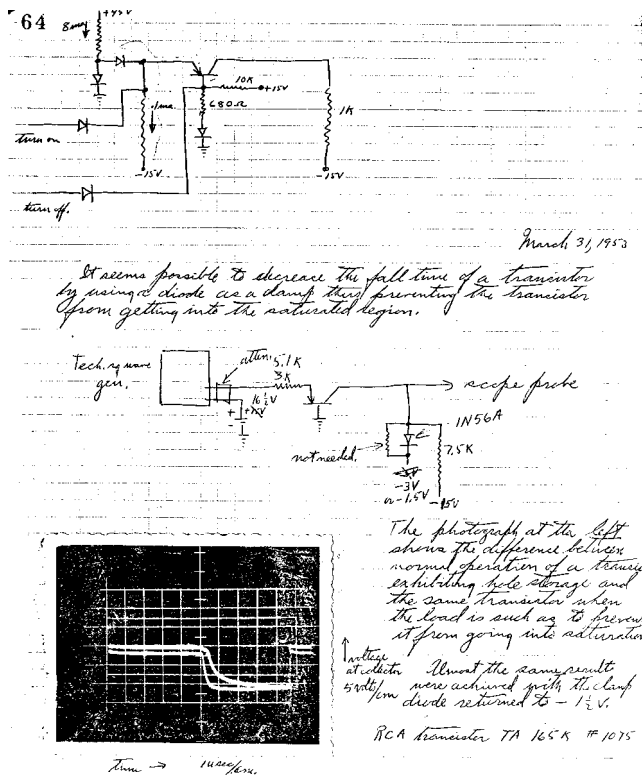 64
8ma
10K
+15V
680Ω
1ma.
1K
turn on
-15V
-15V
turn off.
March 31, 1953
It seems possible to decrease the fall time of a transistor
by using a diode as a clamp thus preventing the transistor
from getting into the saturated region.
Tech. square
gen.
atten.
5.1K
3K
16½V
scope probe
1N56A
7.5K
not needed.
-3V
or -1.5V
-15V
The photograph at the left
shows the difference between
normal operation of a
exhibiting hole storage and
the same transistor when
the load is such as to
it from going into saturation
voltage
at collector
5 volts/cm
Almost the same result
were achived with the clamp
diode returned to - 1½ V.
RCA transistor TA 165K # 1075
Time → 1μsec/cm.